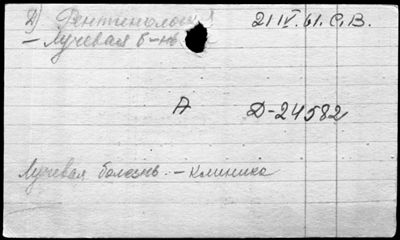 2) Рентгенология 21 IV. 61. С.В.
– Лучевая б-нь
А Д-24582
Лучевая болезнь. – клиника